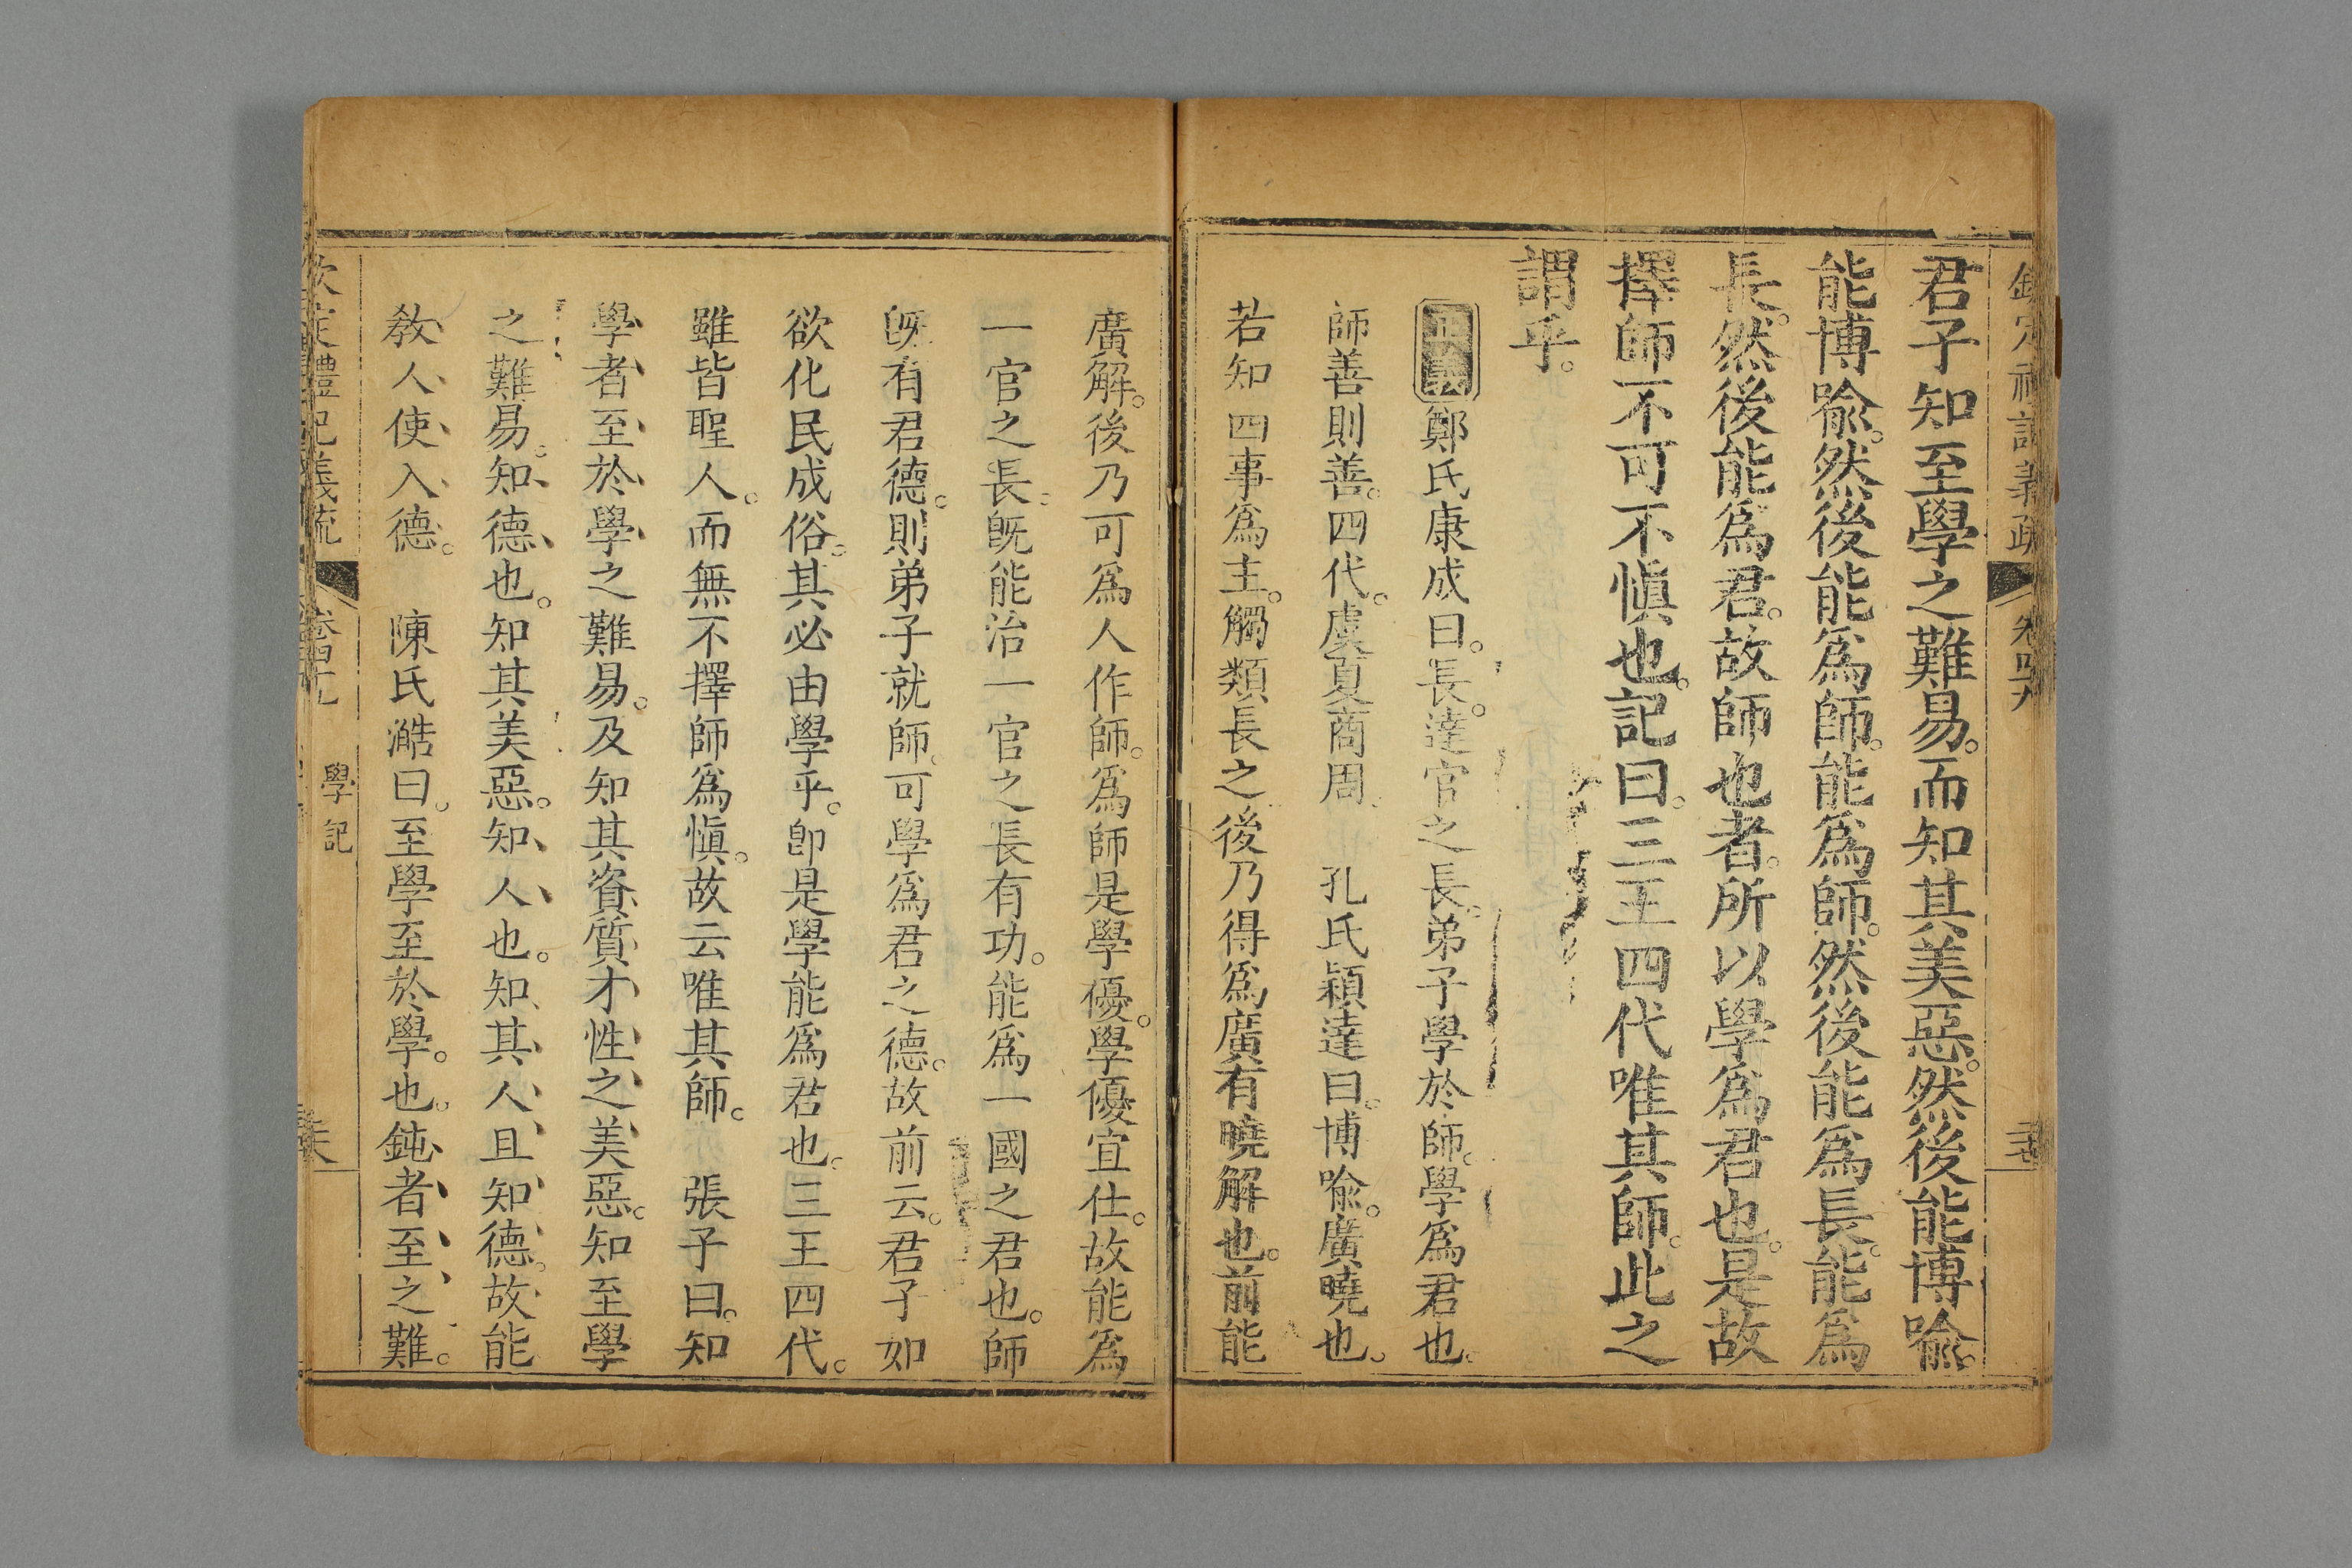 君子知至學之難易。而知其美惡。然後能博喩。
能博喩。然後能爲師。能爲師。然後能爲長。能爲
長。然後能爲君。故師也者。所以學爲君也。是故
擇師不可不愼也。記曰。三王四代唯其師。此之
謂乎。
正義鄭氏康成曰。長。達官之長。弟子學於師。學爲君也。
師善則善。四代。虞夏商周。 孔氏穎達曰。博喩。廣曉也。
若知四事爲主。觸類長之。後乃得爲廣有曉解也。前能
廣解。後乃可爲人作師。爲師是學優。學優宜仕。故能爲
一官之長。旣能治一官之長有功。能爲一國之君也。師
旣有君德。則弟子就師。可學爲君之德。故前云。君子如
欲化民成俗。其必由學乎。卽是學能爲君也。三王四代。
雖皆聖人。而無不擇師爲愼。故云唯其師。 張子曰。知
學者至於學之難易。及知其資質才性之美惡。知至學
之難易。知德也。知其美惡。知人也。知其人且知德。故能
敎人使入德。 陳氏澔曰。至學至於學。也。鈍者至之難。
欽定禮記義疏 卷四十九 學記